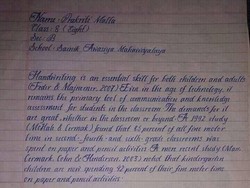 Name - Prakriti Malla
Class - 8 (Eight)
Sec - B
School - Sainik Awasiya Mahavidyalaya
Handwriting is an essential skill for both children and adults
(Feder & Majnemer, 2007). Even in the age of technology, it
remains the primary tool of communication and knowledge
assessment for students in the classroom. The demands for it
are great, whether in the classroom or beyond. A 1992 study
(McHale & Cermak) found that 85 percent of all fine motor
time in second- fourth- and sixth-grade classrooms was
spent on paper and pencil activities. A more recent study (Marr,
Cermak, Cohn & Henderson, 2003) noted that kindergarten
children are now spending 42 percent of their fine motor time
on paper and pencil activities.